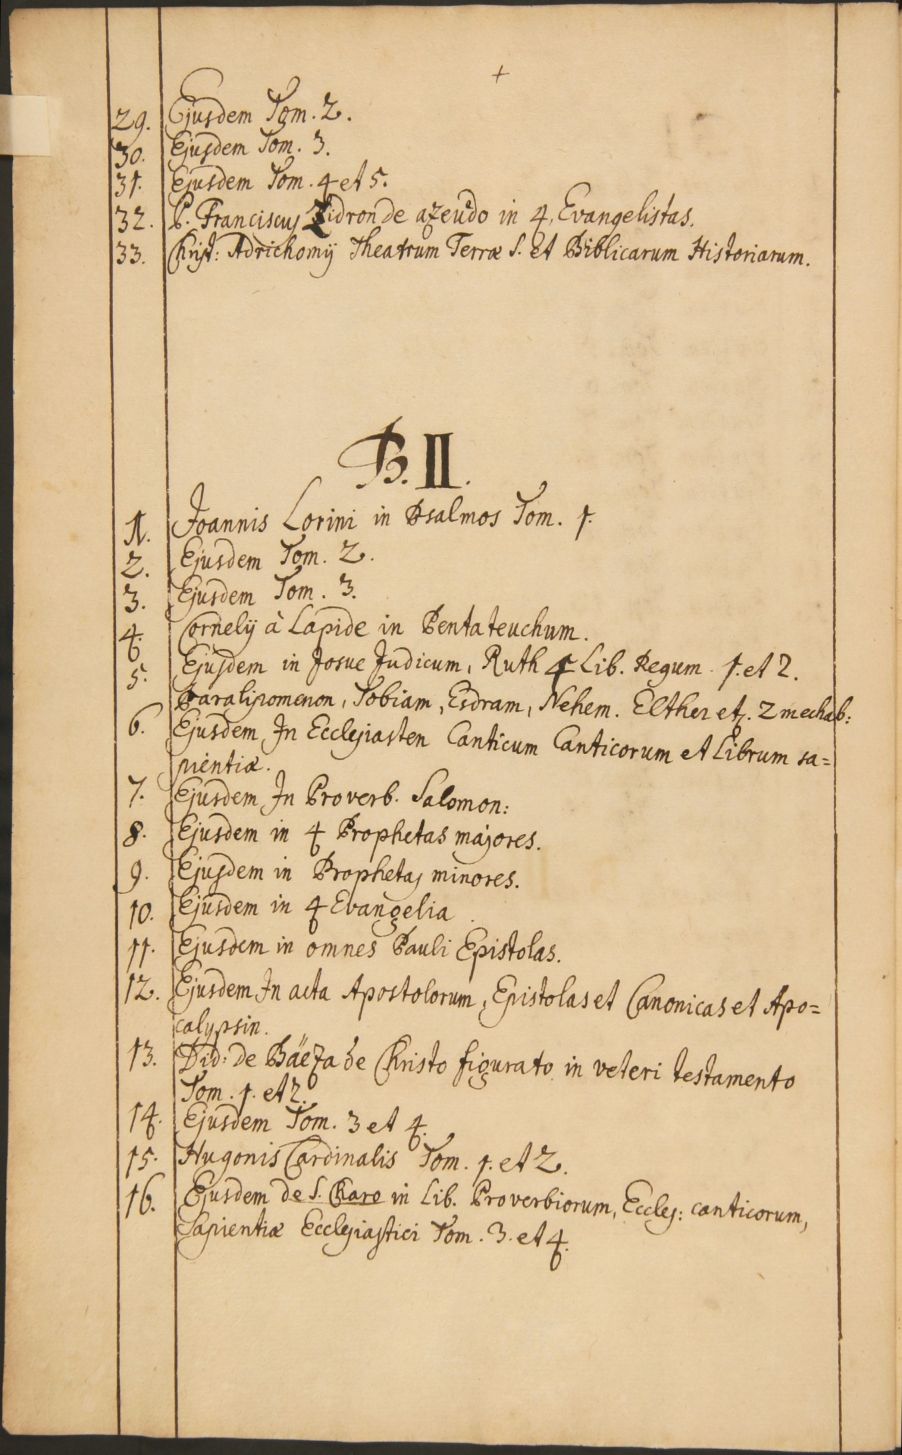 +
29. Ejusdem Tom. 2.
30. Ejusdem Tom. 3.
31. Ejusdem Tom. 4 et 5.
32. P. Franciscus Zidron de azeuedo in 4. Evangelistas.
33. Christ: Adrichomij Theatrum Terræ S. et Biblicarum Historiarum.
B. II.
1. Joannis Lorini in Psalmos Tom. 1.
2. Ejusdem Tom. 2.
3. Ejusdem Tom. 3.
4. Cornelij à Lapide in Pentateuchum.
5. Ejusdem in Josue Judicum, Ruth 4 Lib. Regum. 1. et 2.
Paralipomenon, Tobiam, Esdram, Nehem. Esther et. 2 mechab:
6. Ejusdem In Ecclesiasten Canticum Canticorum et Librum sa=
pientiæ.
7. Ejusdem In Proverb. Salomon:
8. Ejusdem in 4 Prophetas majores.
9. Ejusdem in Prophetas minores.
10. Ejusdem in 4 Evangelia.
11. Ejusdem in omnes Pauli Epistolas.
12. Ejusdem In acta Apostolorum, Epistolas et Canonicas et Apo=
calypsin.
13. Did: de Bäeza de Christo figurato in veteri testamento
Tom. 1. et 2.
14. Ejusdem Tom. 3 et 4.
15. Hugonis Cardinalis Tom. 1. et 2.
16. Ejusdem de S. Charo in Lib. Proverbiorum, Eccles: canticorum,
Sapientiæ Ecclesiastici Tom. 3. et 4.